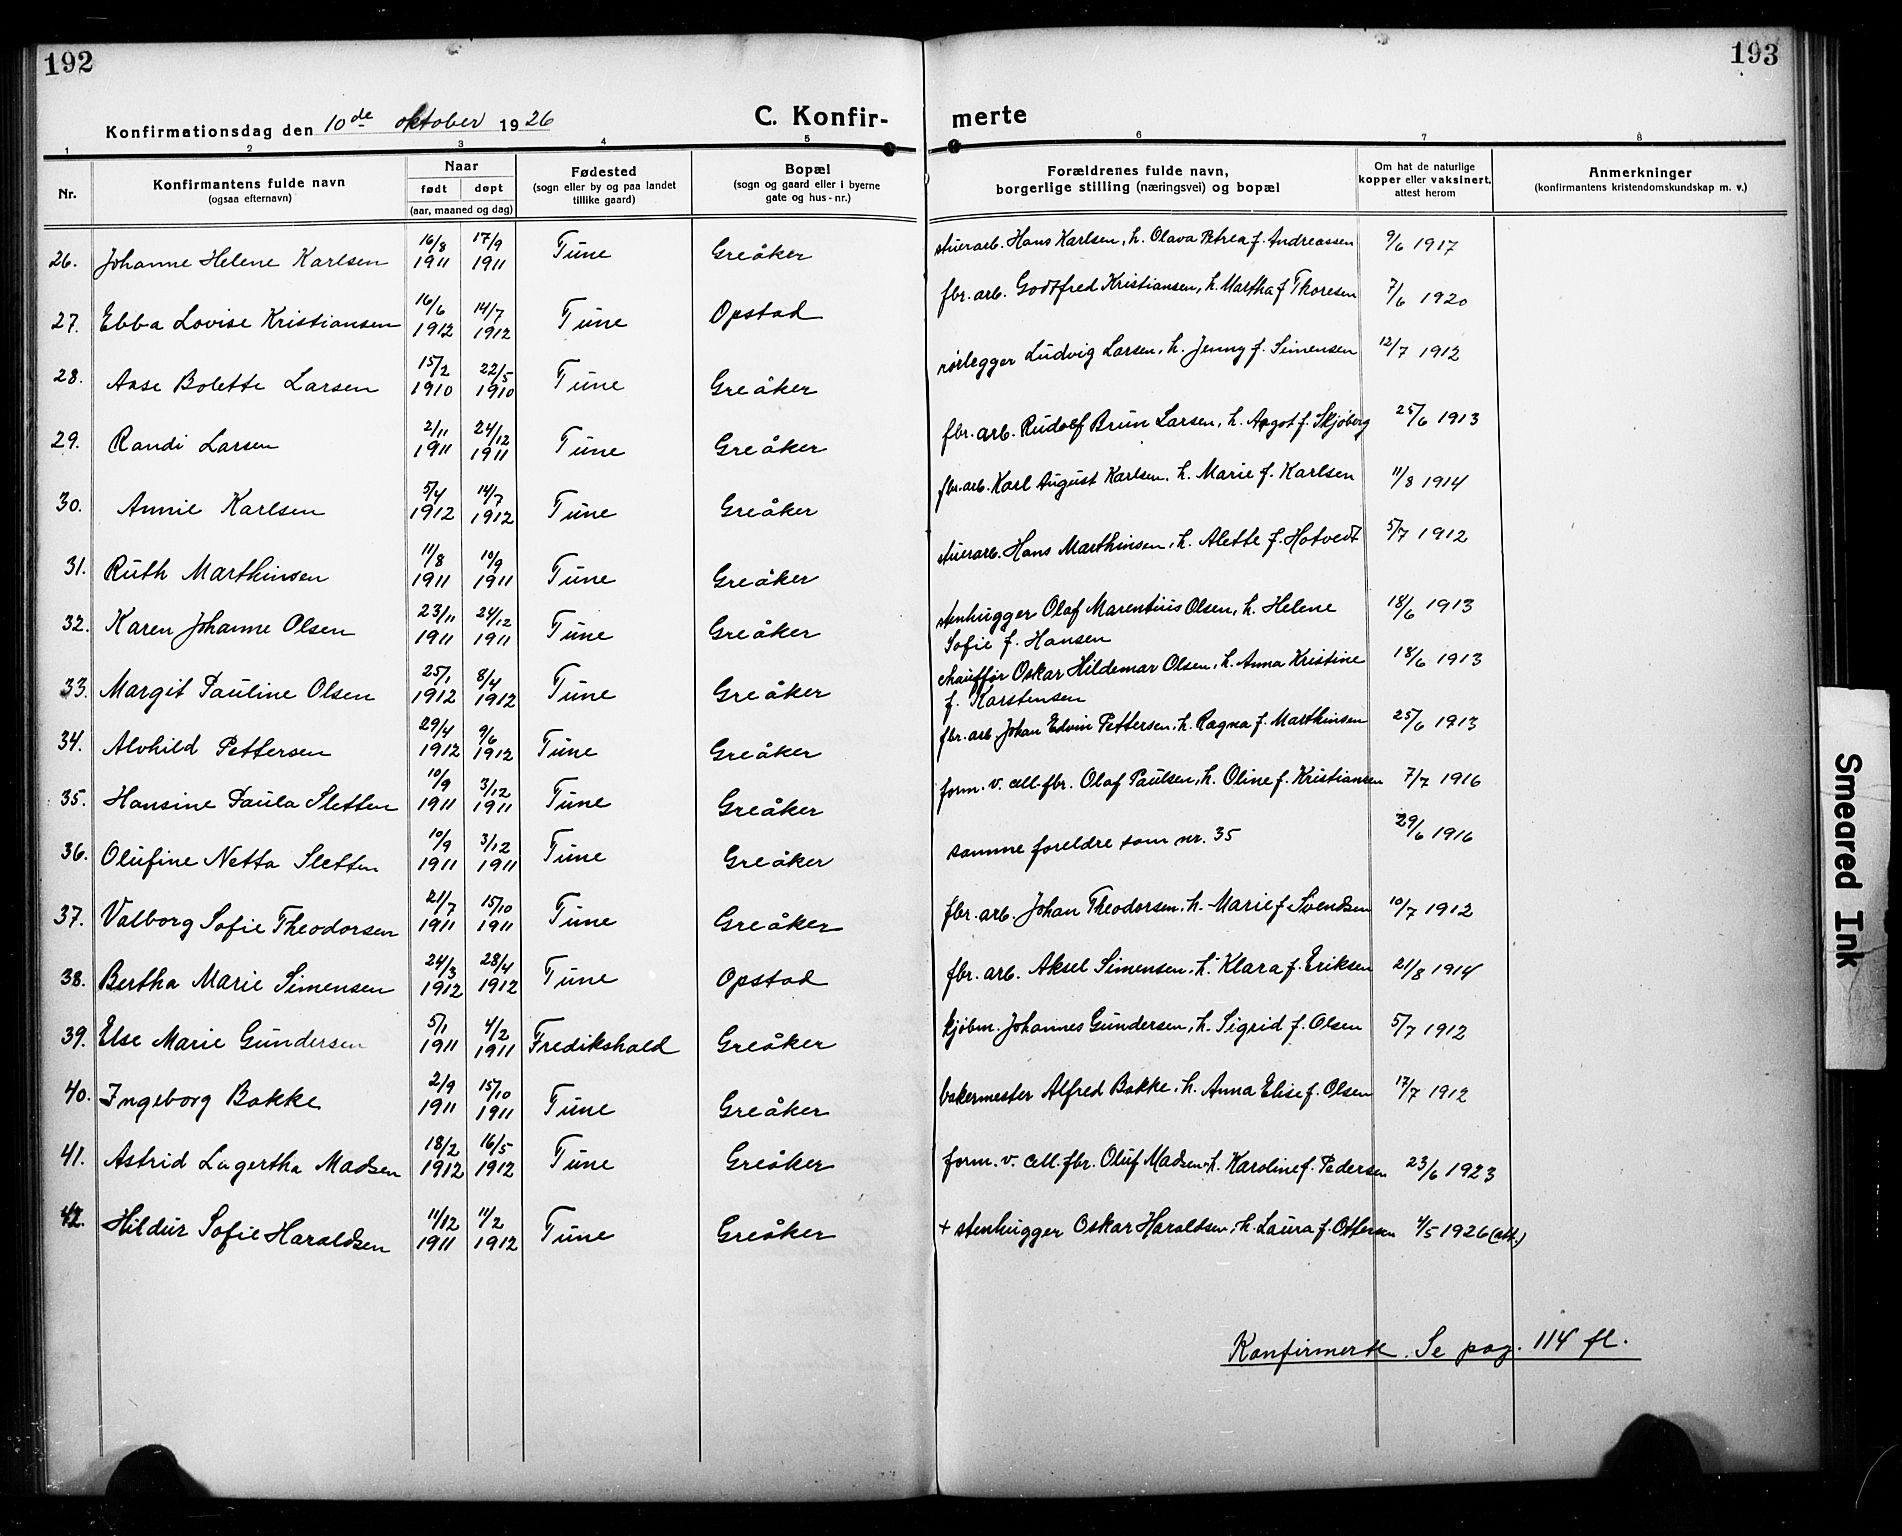 192
193
Konfirmationsdag den 10de oktober 1926
C. Konfir-
merte
1 2 3 4 5 6 7 8
Nr.
Konfirmantens fulde navn
(ogsaa efternavn)
Naar
født døpt
(aar, maaned og dag)
Fødested
(sogn eller by og paa landet
tillike gaard)
Bopæl
(sogn og gaard eller i byerne
gate og hus-nr.)
Forældrenes fulde navn,
borgerlige stilling (næringsvei) og bopæl
Om hat de naturlige
kopper eller vaksinert,
attest herom
Anmerkninger
(konfirmantens kristendomskundskap m. v.)
26. Johanne Helene Karlsen 16/8 1911 17/9 1911 Tune Greåker stuerarb. Hans Karlsen, h. Olava Petrea f. Andreassen 9/6 1917
27. Ebba Lovise Kristiansen 16/6 1912 14/7 1912 Tune Opstad fbr. arb. Godtfred Kristiansen, h. Martha f Thoresen 7/6 1920
28. Aase Bolette Larsen 15/2 1910 22/5 1910 Tune Greåker rørlegger Ludvig Larsen, h. Jenny f. Simensen 12/7 1912
29. Randi Larsen 2/11 1911 24/12 1911 Tune Greåker fbr. arb. Rudolf Brun Larsen, h. Aagot f. Skjøberg 25/6 1913
30. Annie Karlsen 5/4 1912 14/7 1912 Tune Greåker fbr. arb. Karl August Karlsen, h. Marie f. Karlsen 11/8 1914
31. Ruth Marthinsen 11/8 1911 10/9 1911 Tune Greåker stuerarb. Hans Marthinsen, h. Alette f. Hotvedt 5/7 1912
32. Karen Johanne Olsen 23/11 1911 24/12 1911 Tune Greåker stenhugger Olaf Marentius Olsen, h. Helene 18/6 1913
Sofie f. Hansen
33. Margit Pauline Olsen 25/1 1912 8/4 1912 Tune Greåker chauffør Oskar Hildemar Olsen, h. Anna Kristine 18/6 1913
f. Karstensen
34. Alvhild Pettersen 29/4 1912 9/6 1912 Tune Greåker fbr. arb. Johan Edvin Pettersen, h. Ragna f. Marthinsen 25/6 1913
35. Hansine Paula Sletten 10/9 1911 3/12 1911 Tune Greåker form. v. cell. fbr. Olaf Paulsen, h. Oline f. Kristiansen 7/7 1916
36. Olufine Netta Sletten 10/9 1911 3/12 1911 Tune Greåker samme foreldre som nr. 35 29/6 1916
37. Valborg Sofie Theodorsen 21/7 1911 15/10 1911 Tune Greåker fbr. arb. Johan Theodorsen, h. Marie f. Svendsen 10/7 1912
38. Bertha Marie Simensen 24/3 1912 28/4 1912 Tune Opstad fbr. arb. Aksel Simensen, h. Klara f. Eriksen 21/8 1914
39. Else Marie Gundersen 5/1 1911 4/2 1911 Fredikshald Greåker kjøbm. Johannes Gundersen, h. Sigrid f. Olsen 5/7 1912
40. Ingeborg Bakke 2/9 1911 15/10 1911 Tune Greåker bakermester Alfred Bakke, h. Anna Elise f. Olsen 17/7 1912
41. Astrid Lagertha Madsen 18/2 1912 16/5 1912 Tune Greåker form. v. cell. fbr. Oluf Madsen, h. Karoline f. Pedersen 23/6 1923
42. Hildur Sofie Haraldsen 11/12 1911 11/2 1912 Tune Greåker + stenhugger Oskar Haraldsen, h. Laura f. Ottersen 4/5 1926 (att.)
Konfirmerte. Se pag. 114 fl.
Smeared Ink